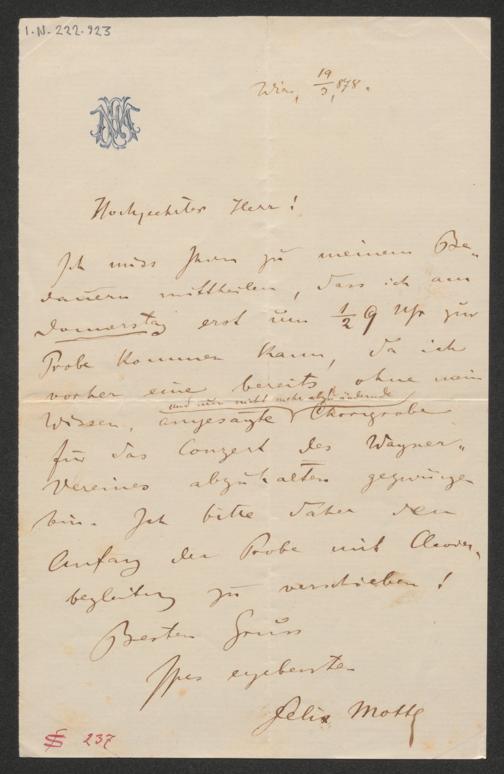 I.N. 222.923
Wien, 19/3, 878.
Hochgeehrter Herr!
Ich muss Ihnen zu meinem Be-
dauern mittheilen, dass ich am
Donnerstag erst um 1/2 9 Uhr zur
Probe kommen kann, da ich
vorher eine bereits, ohne mein
und nun nicht mehr abzuändernde
Wissen, angesagte Chorprobe
für das Conzert des Wagner-
Vereines abzuhalten gezwungen
bin. Ich bitte daher den
Anfang der Probe mit Clavier-
begleitung zu verschieben!
Besten Gruss
Ihres ergebensten
Felix Mottl
237